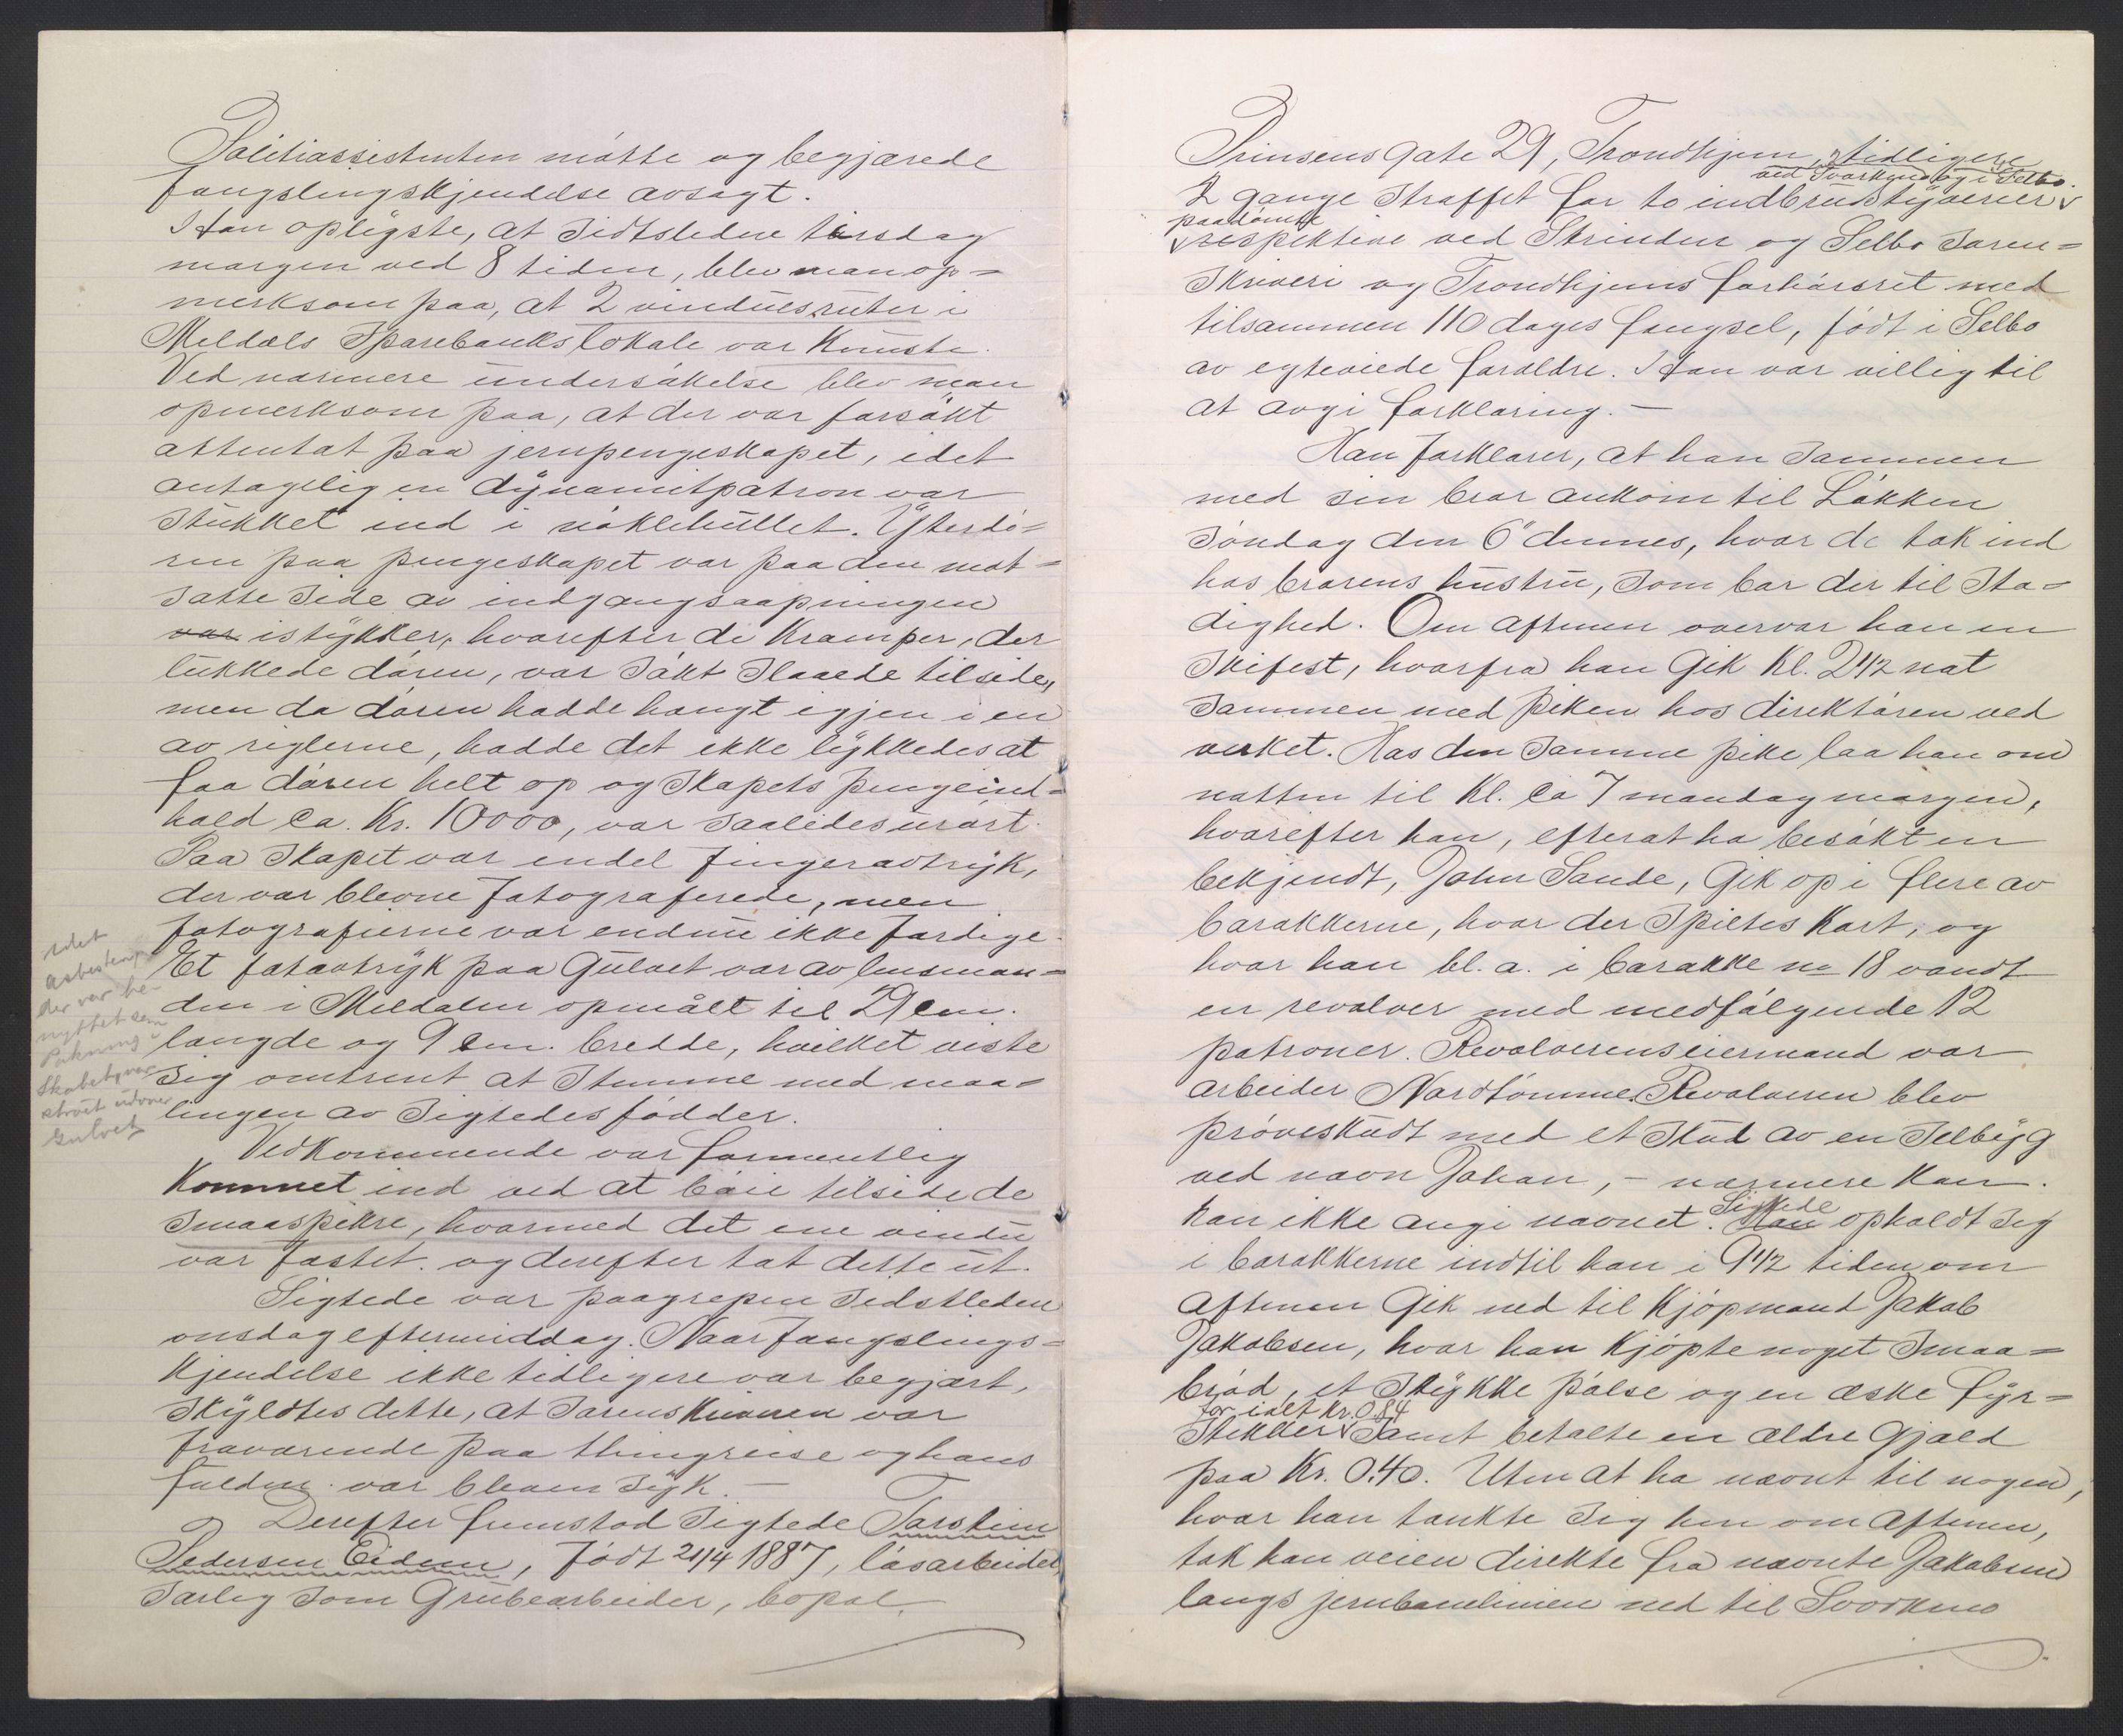 Politiassistenten møtte og begjærede
fængslingskjendelse avsagt.
Han oplyste, at sidstledne tirsdag
morgen ved 8 tiden, blev man op=
merksom paa, at 2 vinduesruter i
Meldals Sparebanks lokale var knuste.
Ved nærmere undersøkelse blev man
opmerksom paa, at der var forsøkt
attentat paa jernpengeskapet, idet
antagelig en dynamitpatron var
stukket ind i nøklehullet. Ytterdø=
ren paa pengeskapet var paa den mot=
satte side av indgangsaapningen
var istykker, hvorefter de kramper, der
lukkede døren, var søkt slaaede tilside,
men da døren hadde hængt igjen i en
av riglerne, hadde det ikke lykkedes at
faa døren helt op og skapets pengeind=
hold ca. Kr. 10000, var saaledes urørt.
Paa skapet var endel fingeravtryk,
der var blevne fotograferede, men
fotografierne var endnu ikke færdige.
Et fotavtryk paa gulvet var av lensman=
den i Meldalen opmålt til 29 cm.
længde og 9 cm. bredde, hvilket viste
sig omtrent at stemme med maa=
lingen av sigtedes fødder.
idet
der var be-
nyttet som
Pakning i
Skabet, var
strøet udover
Gulvet
Vedkommende var formentlig
kommet ind ved at bøie tilside de
smaaspikre, hvormed det ene vindu
var fæstet. og derefter tat dette ut.
Sigtede var paagrepen sidstleden
onsdag eftermiddag. Naar fængslings=
kjendelse ikke tidligere var begjært,
skyldtes dette, at sorenskriveren var
fraværende paa thingreise og hans
fuldm. var bleven syk. —
Derefter fremstod sigtede Torstein
Pedersen Eidem, født 21/4 1887, løsarbeider
særlig som Grubearbeider, bopæl
Prinsens gate 29, Trondhjem, tidligere
ved Svorkmo og i Selbo.
2 gange straffet for to indbrudstyverier
paadømte
respektive ved Strinden og Selbo Soren=
skriveri og Trondhjems forhørsret med
tilsammen 110 dages fængsel, født i Selbo
av egteviede forældre. Han var villig til
at avgi forklaring. —
Han forklarer, at han sammen
med sin bror ankom til Løkken
søndag den 6te dennes, hvor de tok ind
hos brorens hustru, som bor der til sta=
dighed. Om aftenen overvar han en
skifest, hvorfra han gik kl. 2 1/2 nat
sammen med piken hos direktøren ved
verket. Hos den samme pike laa han om
natten til kl. ca 7 mandag morgen,
hvorefter han, efterat ha besøkt en
bekjendt, John Sande, gik op i flere av
barakkerne, hvor der spiltes kort, og
hvor han bl. a. i barakke no 18 vandt
en revolver med medfølgende 12
patroner. Revolverens eiermand var
arbeider Nordtømme. Revolveren blev
prøveskudt med et skud av en Selbyg
ved navn Johan, – nærmere kan
han ikke angi navnet. Han Sigtede opholdt sig
i barakkerne indtil han i 9 1/2 tiden om
aftenen gik ned til Kjøpmand Jakob
Jakobsen, hvor han kjøpte noget smaa=
brød, et stykke pølse og en æske fyr=
for ialt kr. 0.84
stikker samt betalte en ældre gjæld
paa Kr. 0.40. Uten at ha nævnt til nogen,
hvor han tænkte sig hen om aftenen,
tok han veien direkte fra nævnte Jakobsen
langs jernbanelinien ned til Svorkmo